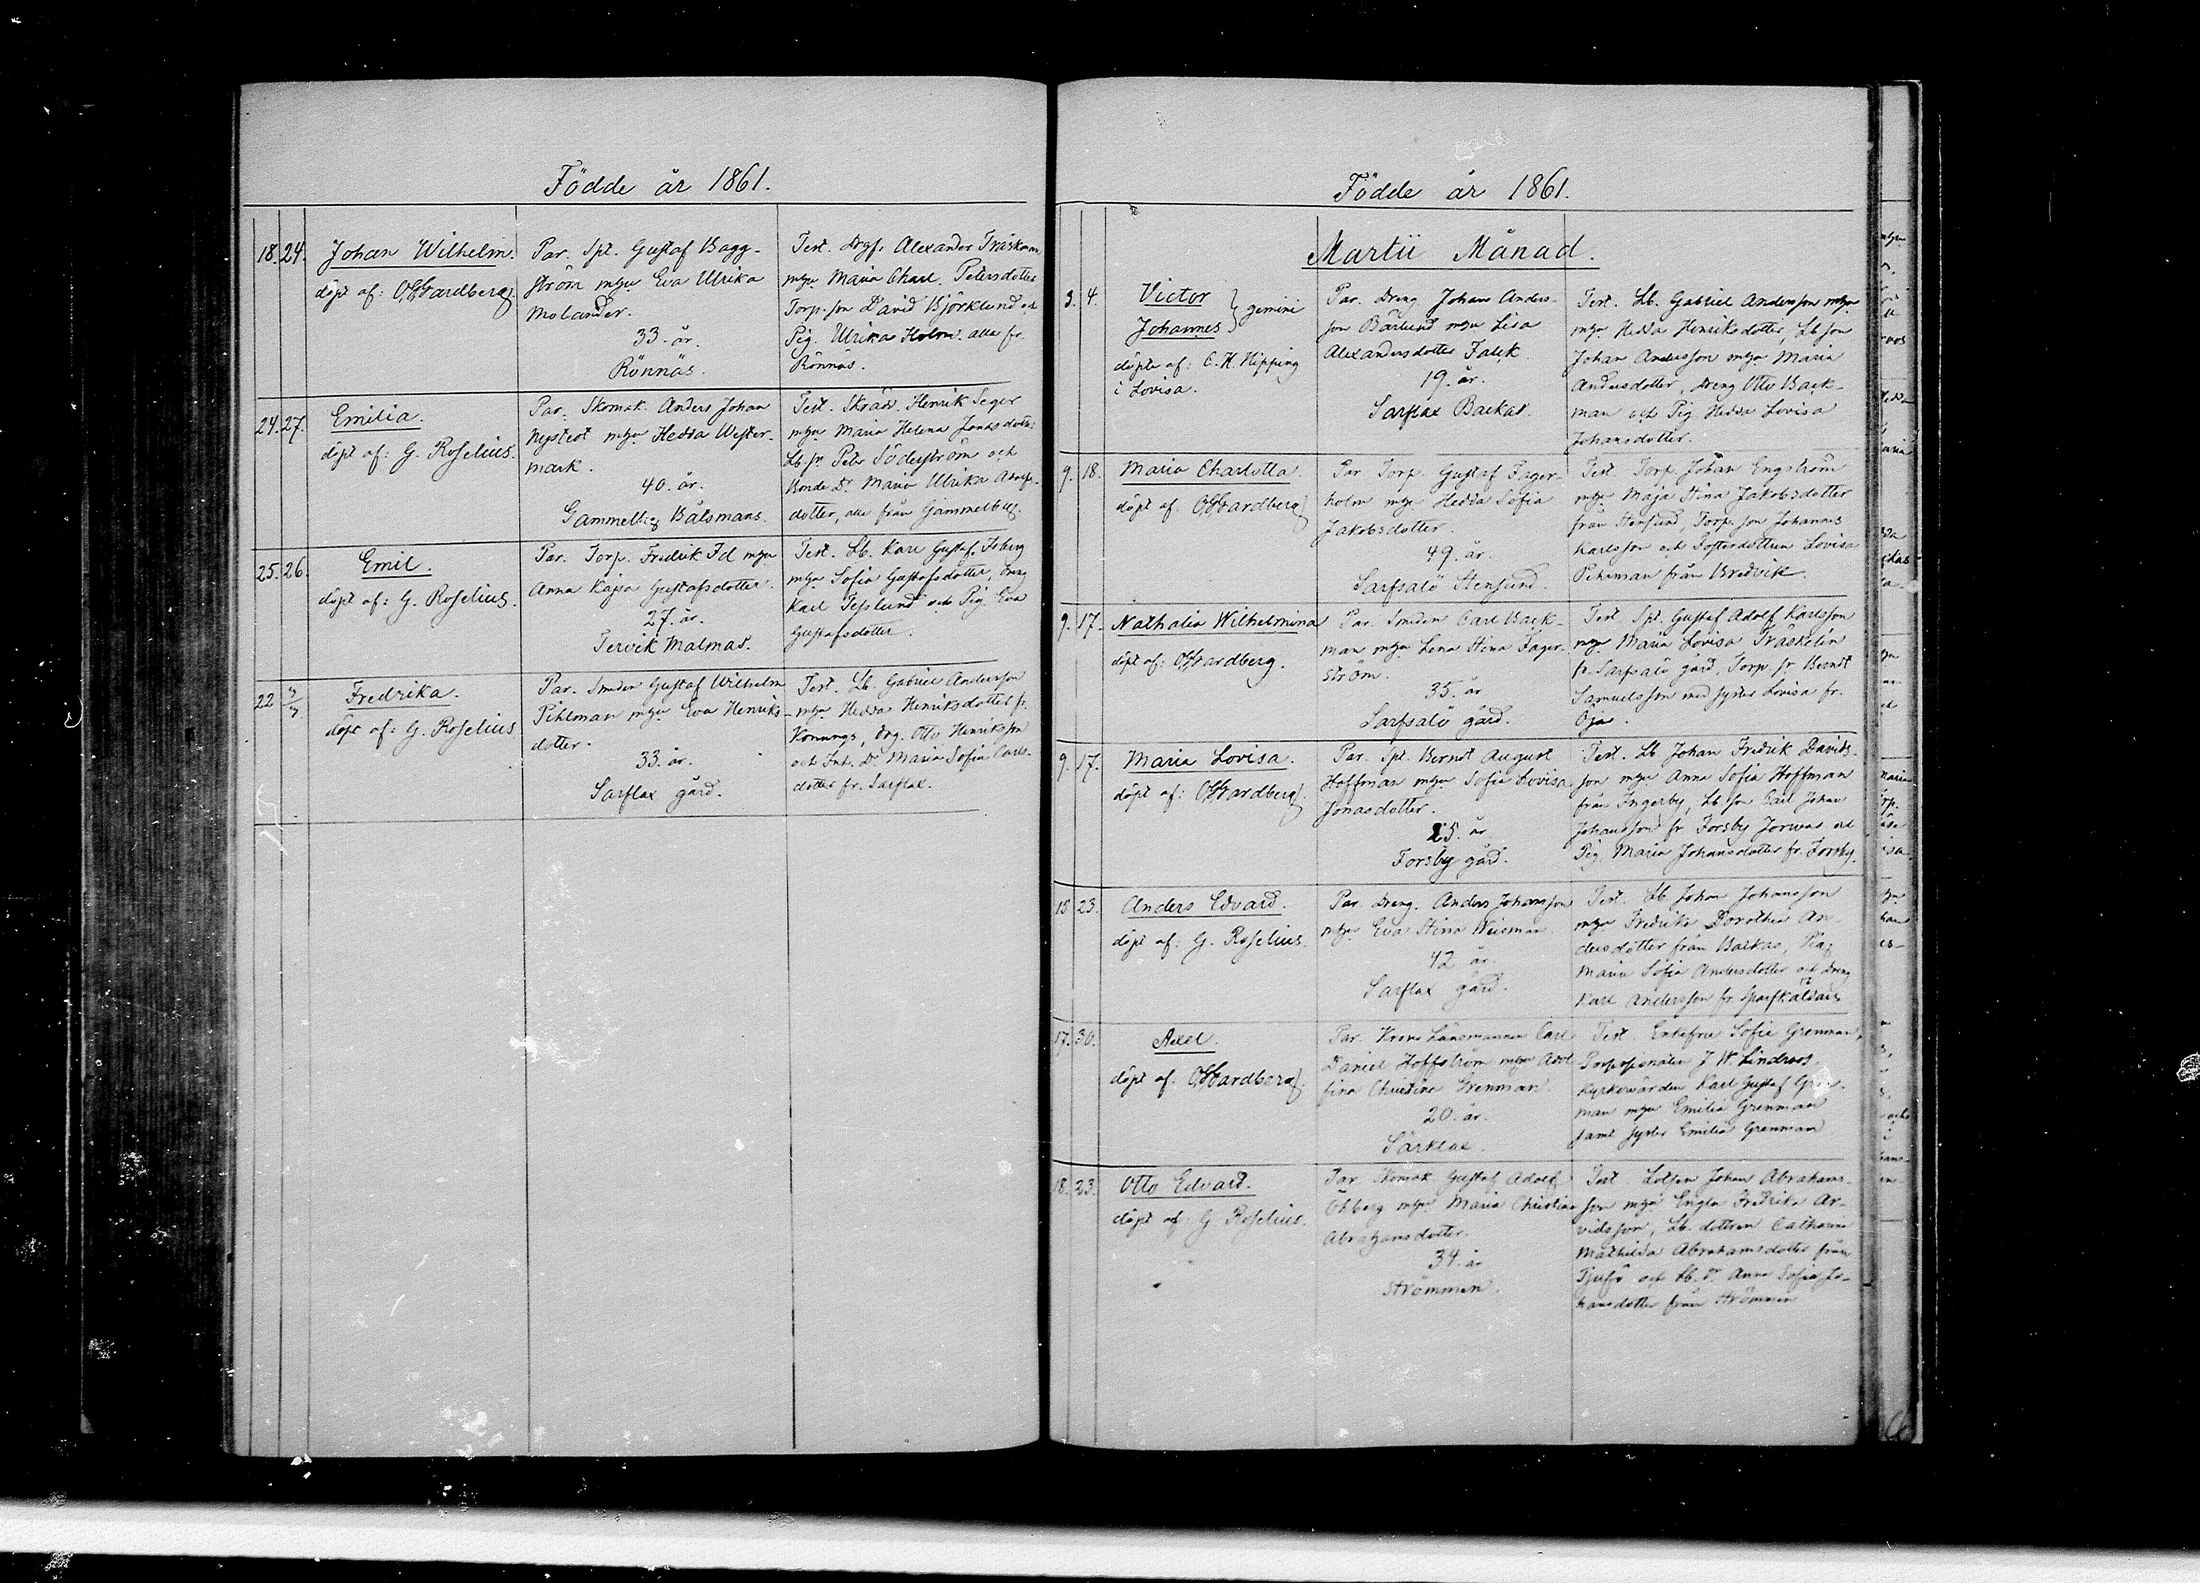 Födde år 1861.
18. 24. Johan Wilhelm.
döpt af: Gardberg.
Par. Spt. Gustaf Bagg-
ström m hu Eva Ulrika
Molander.
33. år.
Rönnäs.
Test. Drgf. Alexander Träskman
mhu Maria Charl. Petersdotter
Torp. son David Björklund och
Pig. Ulrika Holm. alla fr.
Rönnäs.
24. 27. Emilia.
döpt af: G. Roselius.
Par. Skomak. Anders Johan
Nystedt mhu Hedda Wester-
mark.
40. år.
Gammelby Bålsmans.
Test. Skräd. Henrik Seger
mhu Maria Helena Jonasdotter
Lb. sn Peter Söderström och
Bonde Dr Maria Ulrika Adolfs-
dotter, alla från Gammelby.
25. 26. Emil.
döpt af: G. Roselius.
Par. Torp. Fredrik Id mhu
Anna Kajsa Gustafsdotter.
27. år.
Tervik Malmas.
Test. Lb. Karl Gustaf
mhu Sofia Gustafsdotter, Dreng
Karl Teslund och Pig. Eva
Gustafsdotter.
22 3/3 Fredrika.
döpt af: G. Roselius
Par. Smeden Gustaf Wilhelm
Pihlman mhu Eva Henriks-
dotter.
33. år.
Sarflax gård.
Test. Lb. Gabriel Andersson
mhu Hedda Henriksdotter fr.
Konungs, Drg. Otto Henriksson
och Inh. Dr Maria Sofia Carls-
dotter fr. Sarflax.
Födde år 1861.
Martii Månad.
3. 4. Victor
Johannes } gemini
döpte af: C. H. Hipping
i Lovisa.
Par. Dreng Johan Anders-
son Bärlund mhu Lisa
Alexandersdotter Falck.
19. år.
Sarflax Backas.
Test. Lb. Gabriel Andersson mhu
mhu Hedda Henriksdotter, Lb son
Johan Andersson mhu Maria
Andersdotter, Dreng Otto Back-
man och Pig Hedda Lovisa
Johansdotter.
9. 18. Maria Charlotta.
döpt af: Gardberg
Par Torp. Gustaf Fager-
holm mhu Hedda Sofia
Jakobsdotter.
49. år.
Sarfsalö Stensund.
Test Torp. Johan Engström
mhu Maja Stina Jakobsdotter
från Stensund, Torp. son Johannes
Karlsson och Fosterdottren Lovisa
Pihlman från Bredvik.
9. 17. Nathalia Wilhelmina
döpt af: Gardberg.
Par. Smeden Carl Back-
man mhu Lena Stina Fager-
ström.
35. år
Sarfsalö gård.
Test Spt. Gustaf Adolf Karlsson
mhu Maria Lovisa Träskelin
fr. Sarfsalö gård, Torp. sr Berndt
Samuelsson med syster Lovisa fr.
Öja.
9. 17. Maria Lovisa.
döpt af: Gardberg
Par. Spt. Berndt August
Hoffman mhu Sofia Lovisa
Jonasdotter.
25. år
Forsby gård.
Test. Lb Johan Fredrik Davids-
son mhu Anna Sofia Hoffman
från Ingerby, Lb son Carl Johan
Johansson fr Forsby Jorwas och
Pig Maria Johansdotter fr. Forsby.
15 23. Anders Edvard.
döpt af: G. Roselius.
Par. Dreng. Anders Johansson
mhu Eva Stina Weisman
42 år.
Sarflax gård.
Test. Lb Johan Johansson
mhu Fredrika Dorothea An-
dersdotter från Backas, Pig
Maria Sofia Andersdotter och Dreng
Karl Andersson fr.
17. 30. Axel.
döpt af: Gardberg.
Par. Krono Länsmannen Carl
Daniel Hoffström mhu Adol-
fina Christina Grenman.
20. år.
Särklax.
Test Enkefru Sofia Grenman,
J W Lindroos
Kyrkowärden Karl Gustaf Gren-
man mhu Emilia Grenman
samt syster Emilia Grenman
18. 23. Otto Edvard.
döpt af: G Roselius.
Par Skomak Gustaf Adolf
Öhberg mhu Maria Christina
Abrahamsdotter.
34. år
Strömmen.
Test Lotsen Johan Abrahams-
son mhu Engla Fredrika Ar-
vidsson, Lb. dottren Catharina
Mathilda Abrahamsdotter från
Tjufö och Lb. Dr Anna Sofia Jo-
hansdotter från Strömmen